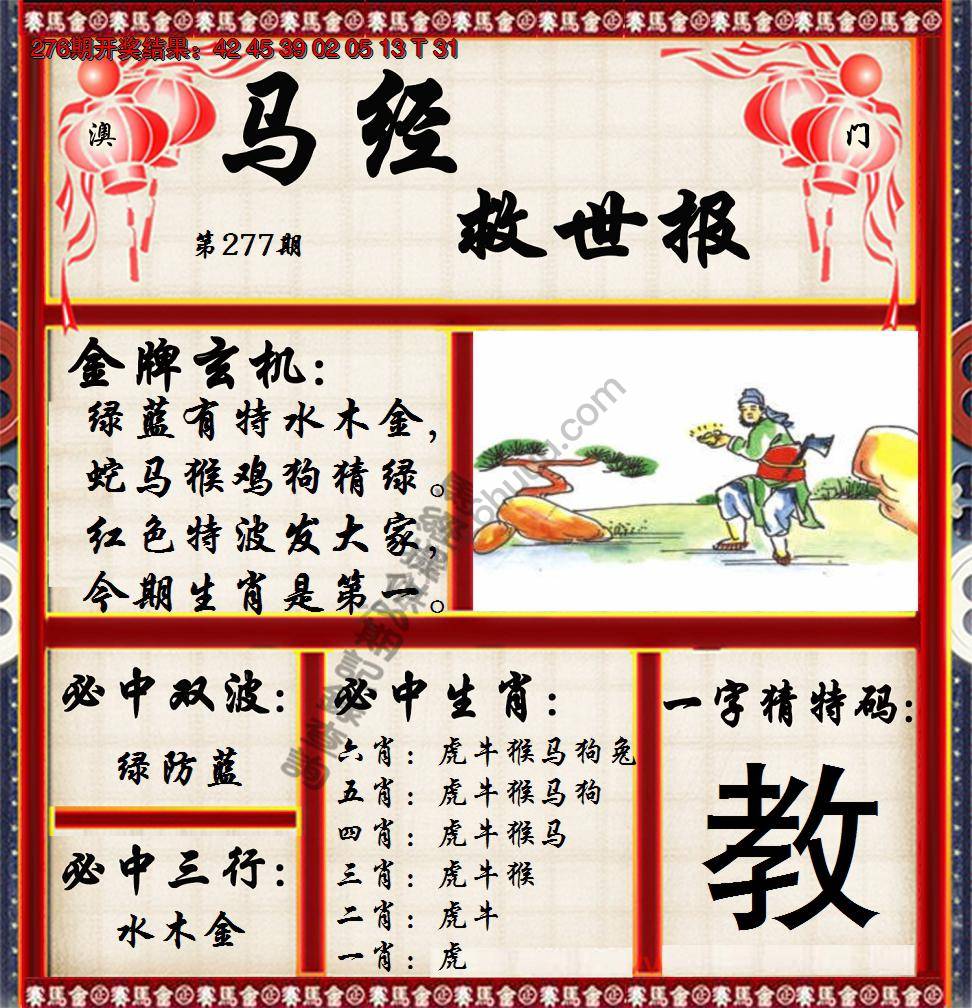 276期开奖结果：42 45 39 02 05 13 T 31
澳 门
马经
救世报
第277期
金牌玄机：
绿蓝有特水木金，
蛇马猴鸡狗猜绿。
红色特波发大家，
今期生肖是第一。
必中双波：
绿防蓝
必中三行：
水木金
必中生肖：
六肖：虎牛猴马狗兔
五肖：虎牛猴马狗
四肖：虎牛猴马
三肖：虎牛猴
二肖：虎牛
一肖：虎
一字猜特码：
教